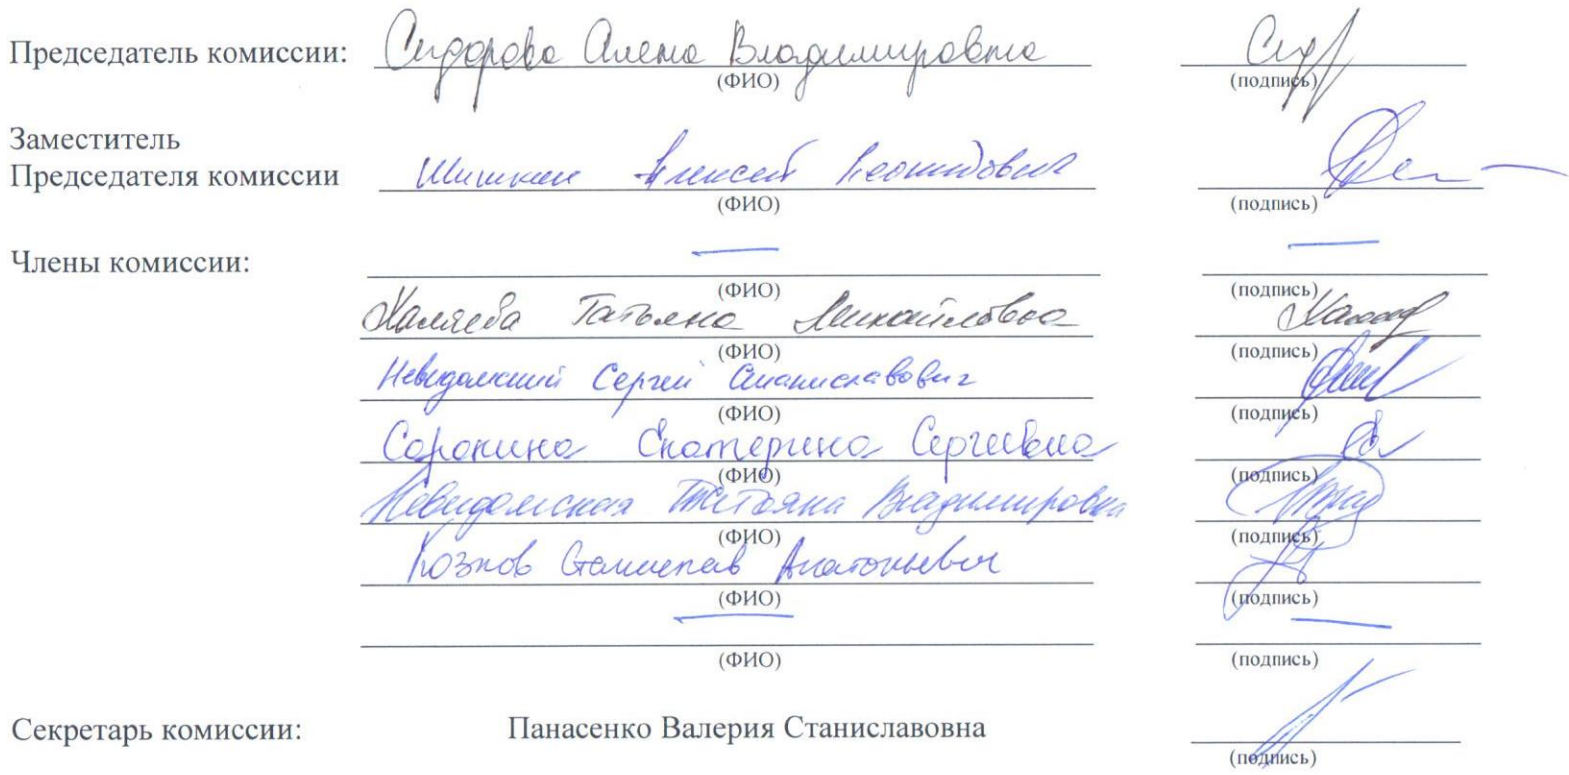 Председатель комиссии: Сидорова Алена Владимировна
(ФИО) (подпись)
Заместитель
Председателя комиссии Шишкин Алексей Леонидович
(ФИО) (подпись)
Члены комиссии: — —
(ФИО) (подпись)
Халяева Татьяна Михайловна
(ФИО) (подпись)
Неведомский Сергей Станиславович
(ФИО) (подпись)
Сорокина Екатерина Сергеевна
(ФИО) (подпись)
Неведомская Татьяна Владимировна
(ФИО) (подпись)
Козлов Станислав Анатольевич
(ФИО) (подпись)
— —
(ФИО) (подпись)
Секретарь комиссии: Панасенко Валерия Станиславовна
(подпись)